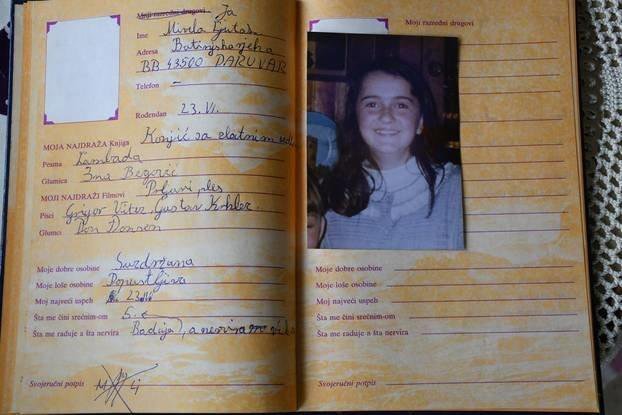 Moji razredni drugovi Ja
Ime Mirela
Adresa
BB 43500 DARUVAR
Telefon –
Rođendan 23. VI.
MOJA NAJDRAŽA Knjiga Konjić sa zlatnim
Pesma Lambada
Glumica Ena Begović
MOJI NAJDRAŽI Filmovi Prljavi ples
Pisci Grigor Vitez, Gustav
Glumci Don Donson
Moje dobre osobine Suzdržana
Moje loše osobine Popustljiva
Moj najveći uspeh
Šta me čini srećnim-om 5.
Šta me raduje a šta nervira
Svojeručni potpis
Moji razredni drugovi
Moje dobre osobine
Moje loše osobine
Moj najveći uspeh
Šta me čini srećnim-om
Šta me raduje a šta nervira
Svojeručni potpis